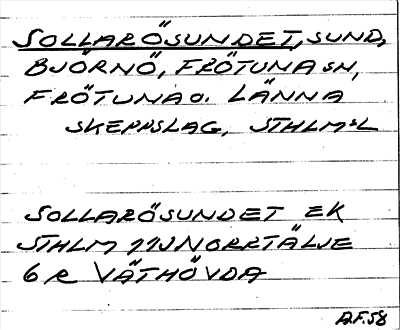 SOLLARÖSUNDET, SUND,
BJÖRNÖ, FRÖTUNA SN,
FRÖTUNA O. LÄNNA
SKEPPSLAG, STHLMSL
SOLLARÖSUNDET EK
STHLM 11J NORRTÄLJE
6 R VÄTHÖVDA
A.F.58